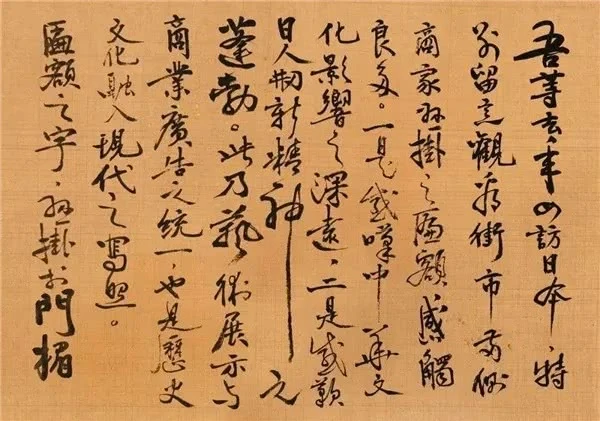 吾等去年四訪日本、特
别留意觀看街市兩側
商家懸掛之匾額、感觸
良多。一是感嘆中華文
化影響之深遠、二是感歎
日人刱新精神之
蓬勃。此乃藝術展示与
商業廣告之統一、也是歷史
文化融入現代之寫照。
匾額之字、懸掛於門楣